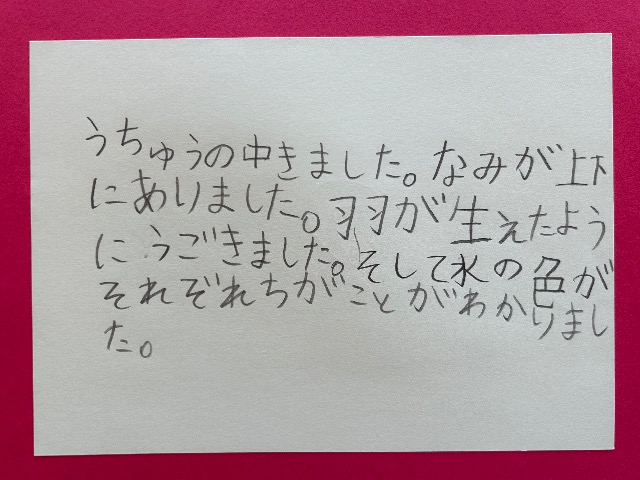 うちゅうの中きました。なみが上下
にありました。羽が生えたよう
にうごきました。そして水の色が
それぞれちがことがわかりまし
た。